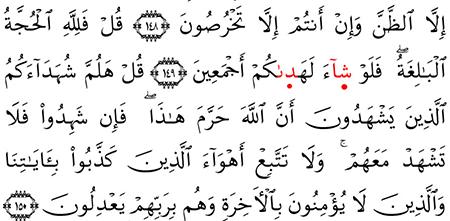 إِلَّا ٱلظَّنَّ وَإِنْ أَنتُمْ إِلَّا تَخْرُصُونَ ﴿١٤٨﴾ قُلْ فَلِلَّهِ ٱلْحُجَّةُ
ٱلْبَـٰلِغَةُ ۖ فَلَوْ شَآءَ لَهَدَىٰكُمْ أَجْمَعِينَ ﴿١٤٩﴾ قُلْ هَلُمَّ شُهَدَآءَكُمُ
ٱلَّذِينَ يَشْهَدُونَ أَنَّ ٱللَّهَ حَرَّمَ هَـٰذَا ۖ فَإِن شَهِدُوا۟ فَلَا
تَشْهَدْ مَعَهُمْ ۚ وَلَا تَتَّبِعْ أَهْوَآءَ ٱلَّذِينَ كَذَّبُوا۟ بِـَٔايَـٰتِنَا
وَٱلَّذِينَ لَا يُؤْمِنُونَ بِٱلْـَٔاخِرَةِ وَهُم بِرَبِّهِمْ يَعْدِلُونَ ﴿١٥٠﴾